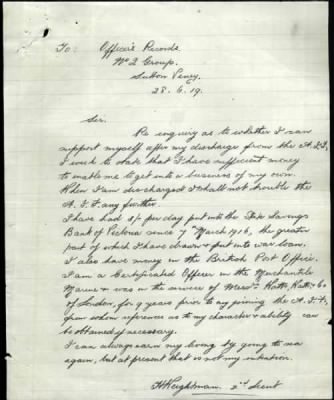 To: Officer i/c Records
No 2 Group.
Sutton Veney.
28.6.19.
Sir.
Re enquiry as to whether I can
support myself after my discharge from the A.I.F.
I wish to state that I have sufficient money
to enable me to get into a business of my own.
When I am discharged I shall not trouble the
A.I.F. any further.
I have had 3/- per day put into the State Savings
Bank of Victoria since 7th March 1916, the greater
part of which I have drawn & put into war loan,
I also have money in the British Post Office.
I am a Certificated Officer in the Merchantile
Marine & was in the services of Messrs & Co
of London, for 9 years prior to my joining the A.I.F.
from whom references as to my character & ability can
be obtained if necessary.
I can always earn my living by going to sea
again, but at present that is not my intention.
Heightman. 2nd Lieut